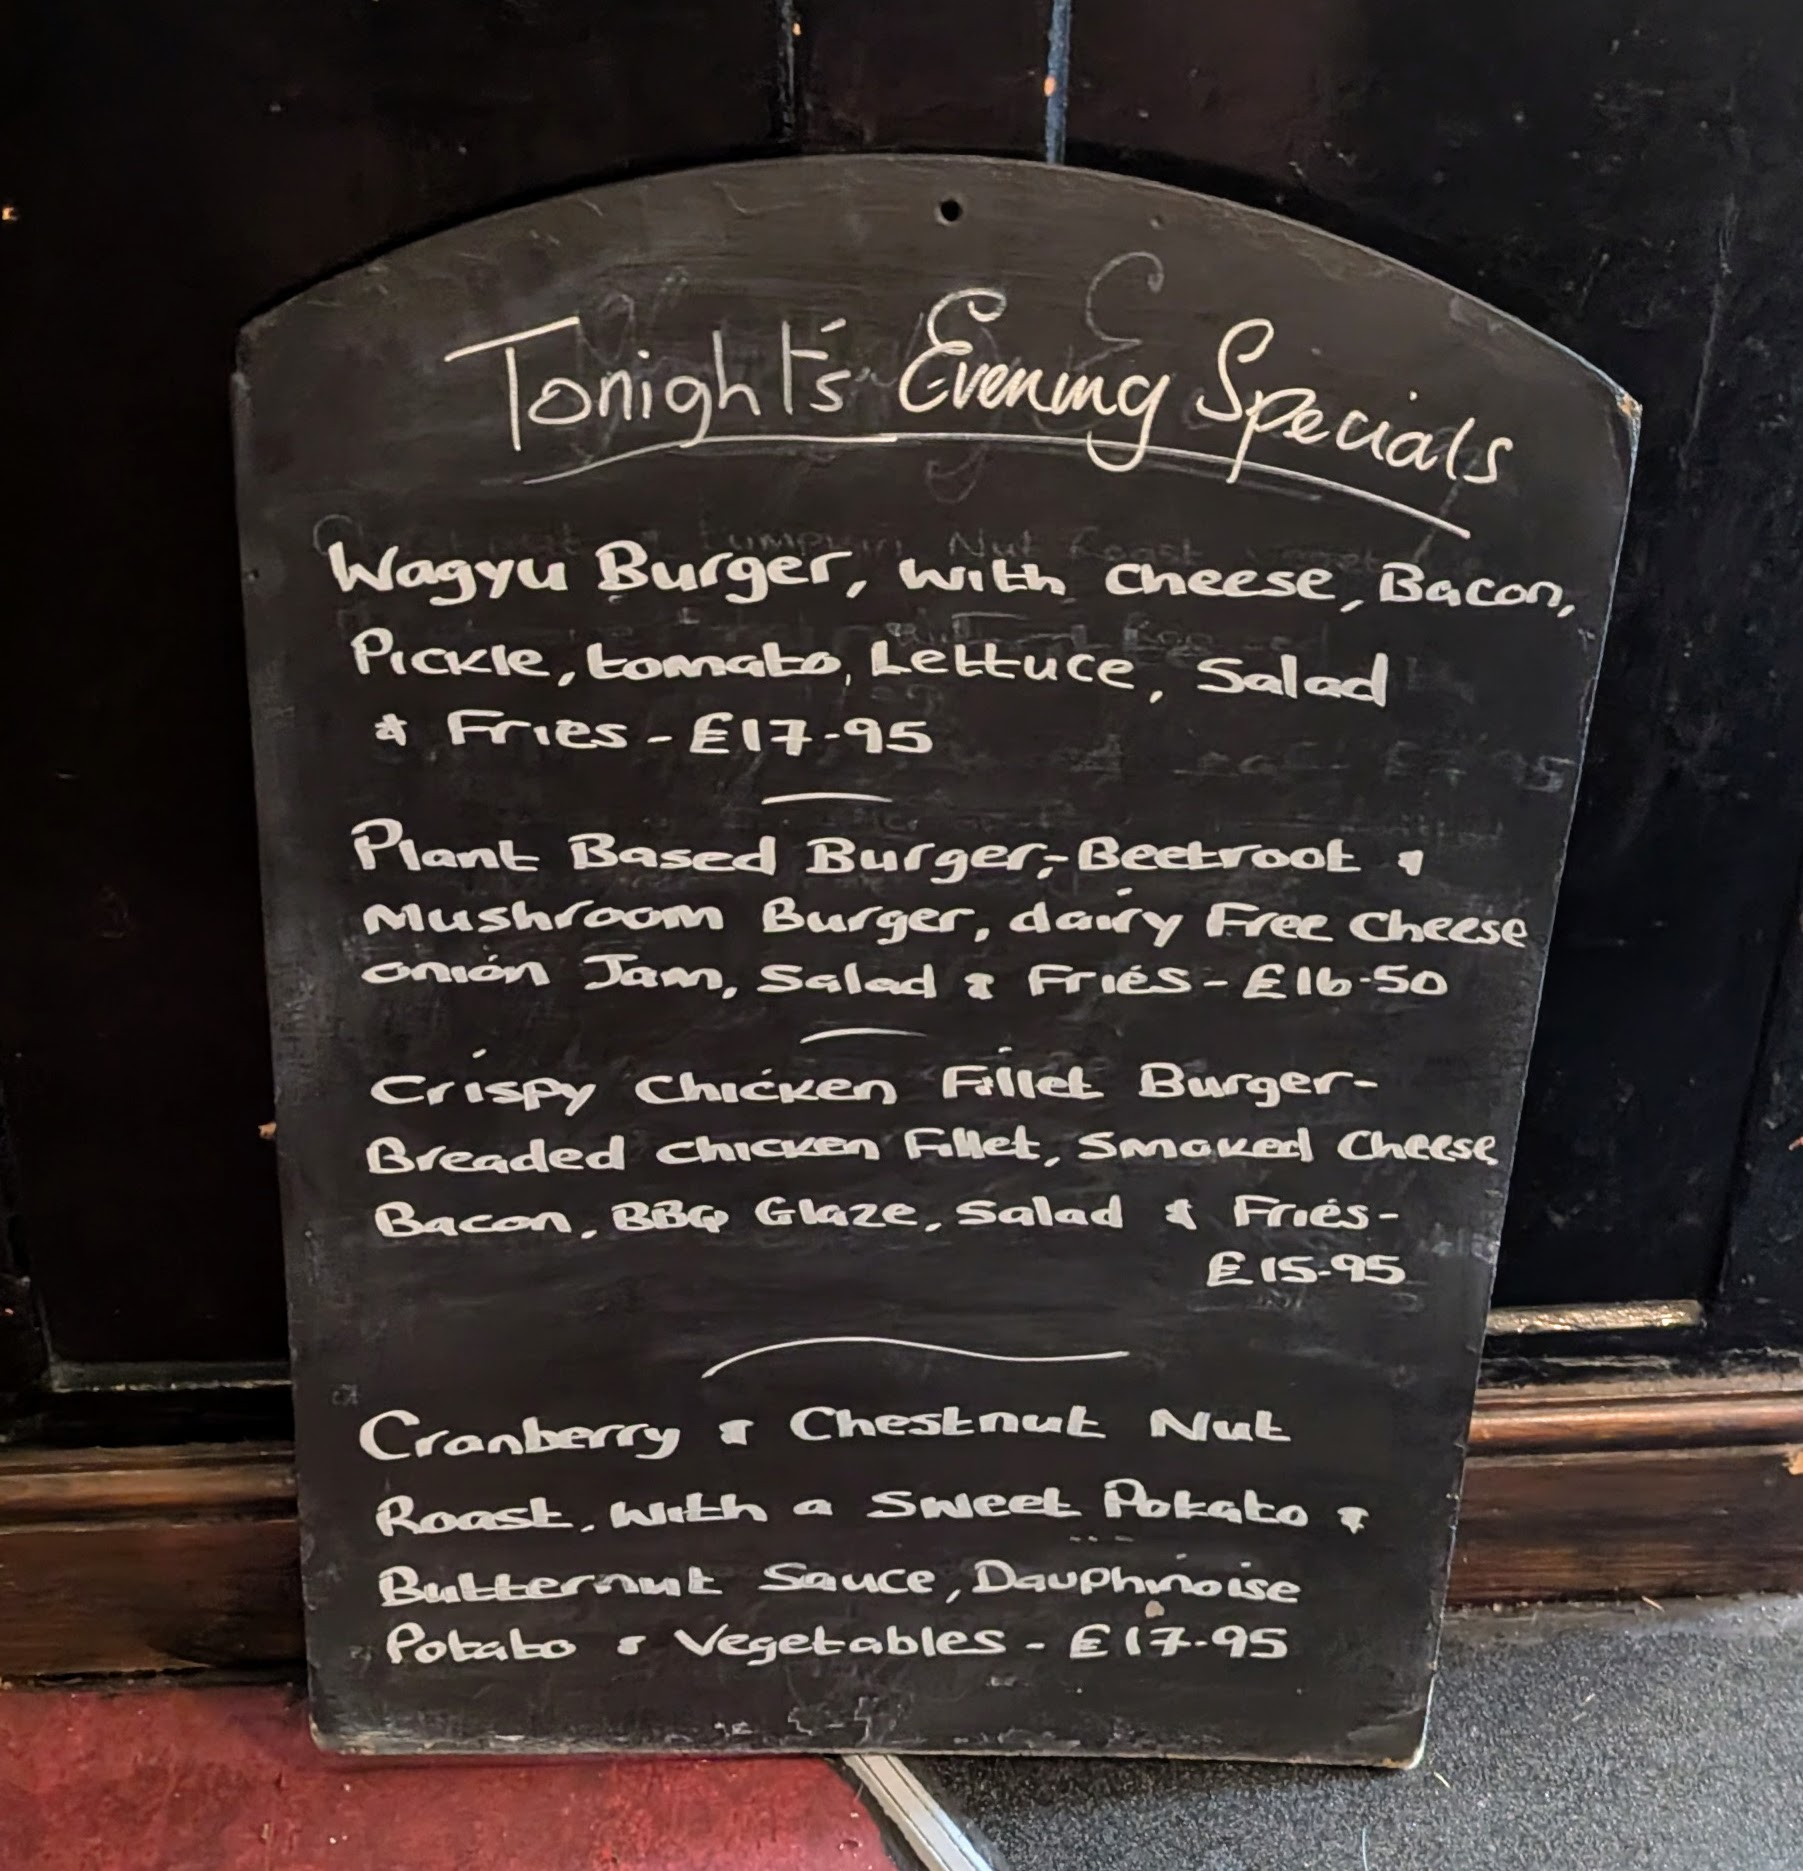 Tonight's Evening Specials
Wagyu Burger, with cheese, Bacon,
Pickle, tomato, Lettuce, Salad
& Fries - £17-95
Plant Based Burger,- Beetroot &
Mushroom Burger, dairy Free Cheese
onion Jam, Salad & Fries - £16-50
Crispy Chicken Fillet Burger-
Breaded chicken Fillet, Smoked Cheese
Bacon, BBQ Glaze, Salad & Fries-
£15-95
Cranberry & Chestnut Nut
Roast, with a Sweet Potato &
Butternut Sauce, Dauphinoise
Potato & Vegetables - £17-95